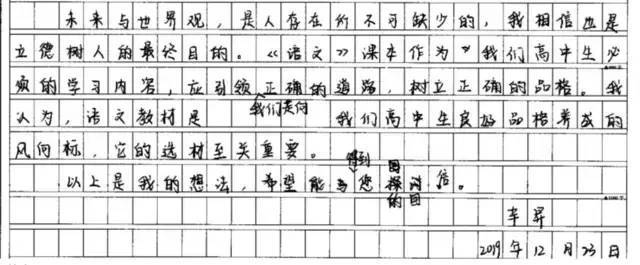 未来与世界观，是人存在所不可缺少的，我相信也是
立德树人的最终目的。《语文》课本作为我们高中生必
须的学习内容，应引领我们走向正确的道路，树立正确的品格。我
认为，语文教材是我们高中生良好品格养成的
风向标，它的选材至关重要。
以上是我的想法，希望能得到您的回信。
2019年12月23日